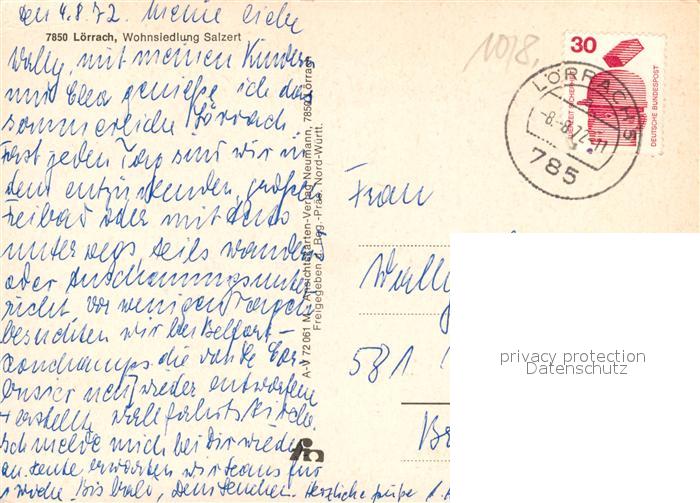 den 4.8.72. Meine liebe
7850 Lörrach, Wohnsiedlung Salzert
Wally, mit meinen Kindern
und Elea genieße ich das
sommerliche Lörrach.
Fast jeden Tag sind wir in
dem entzückenden, großen
Freibad oder mit Auto
unterwegs, teils wandern
oder Anschauungsunter
richt. Vor wenigen Tagen
besuchten wir bei Belfort-
Ronchamps die von Le Cor
busier
entworfene
+ erstellte Wallfahrtskirche.
Ich melde mich bei Dir wieder
an. Heute erwarten wir
Woche. Bis bald, Dein
Herzliche Grüße
A-V 72061 M - Ansichtskarten-Verlag Neumann, 7850 Lörrach
Freigegeben d. Reg.-Präs. Nord-Württ.
1018,
30
DEUTSCHE BUNDESPOST
LÖRRACH 5
-8.-8.72.-11
785
Frau
Wally
581
Be
privacy protection
Datenschutz